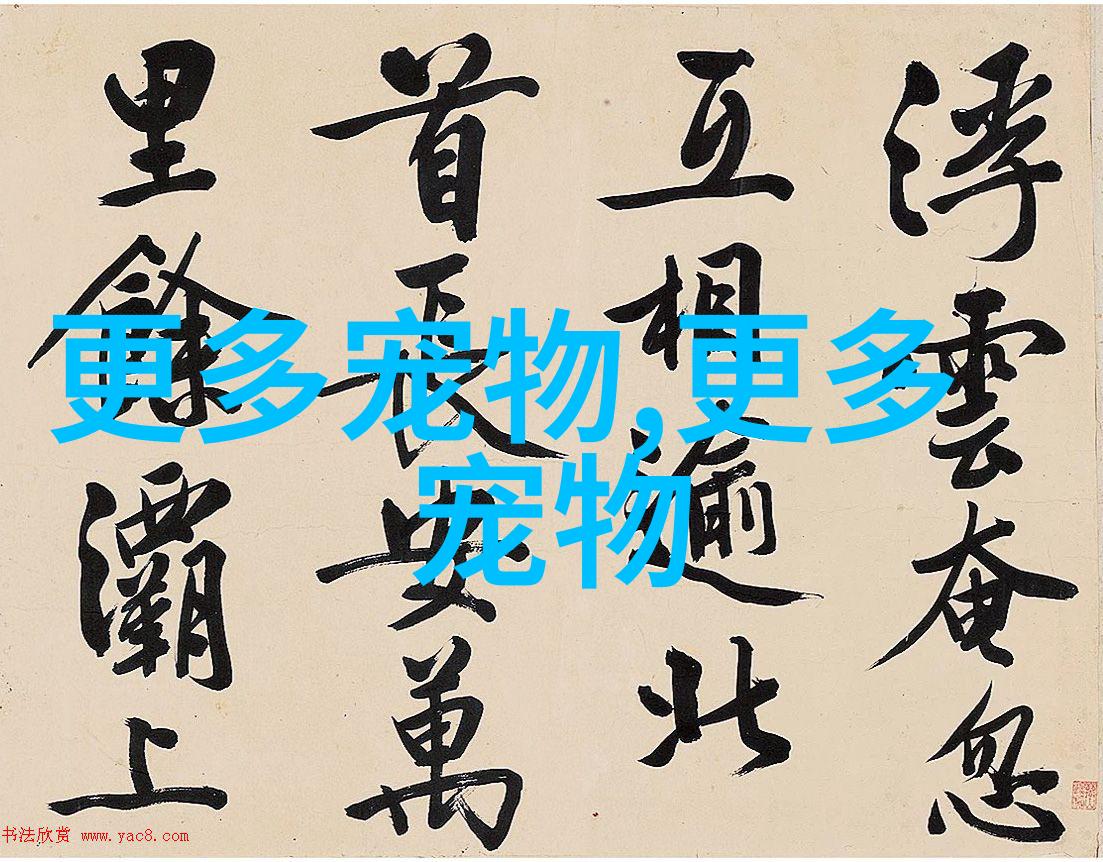 浮雲奄忽
互相逾北
首長安萬
里餘灞上
更多宠物,更多
宠物
书法欣赏 www.yac8.com